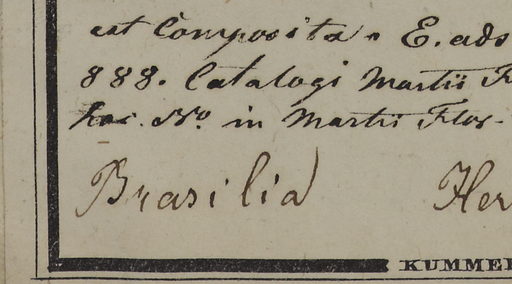 est Composita. E. ads
888. Catalogi Martii F
hac. No. in Martii Flor.
Brasilia Her
KUMMER